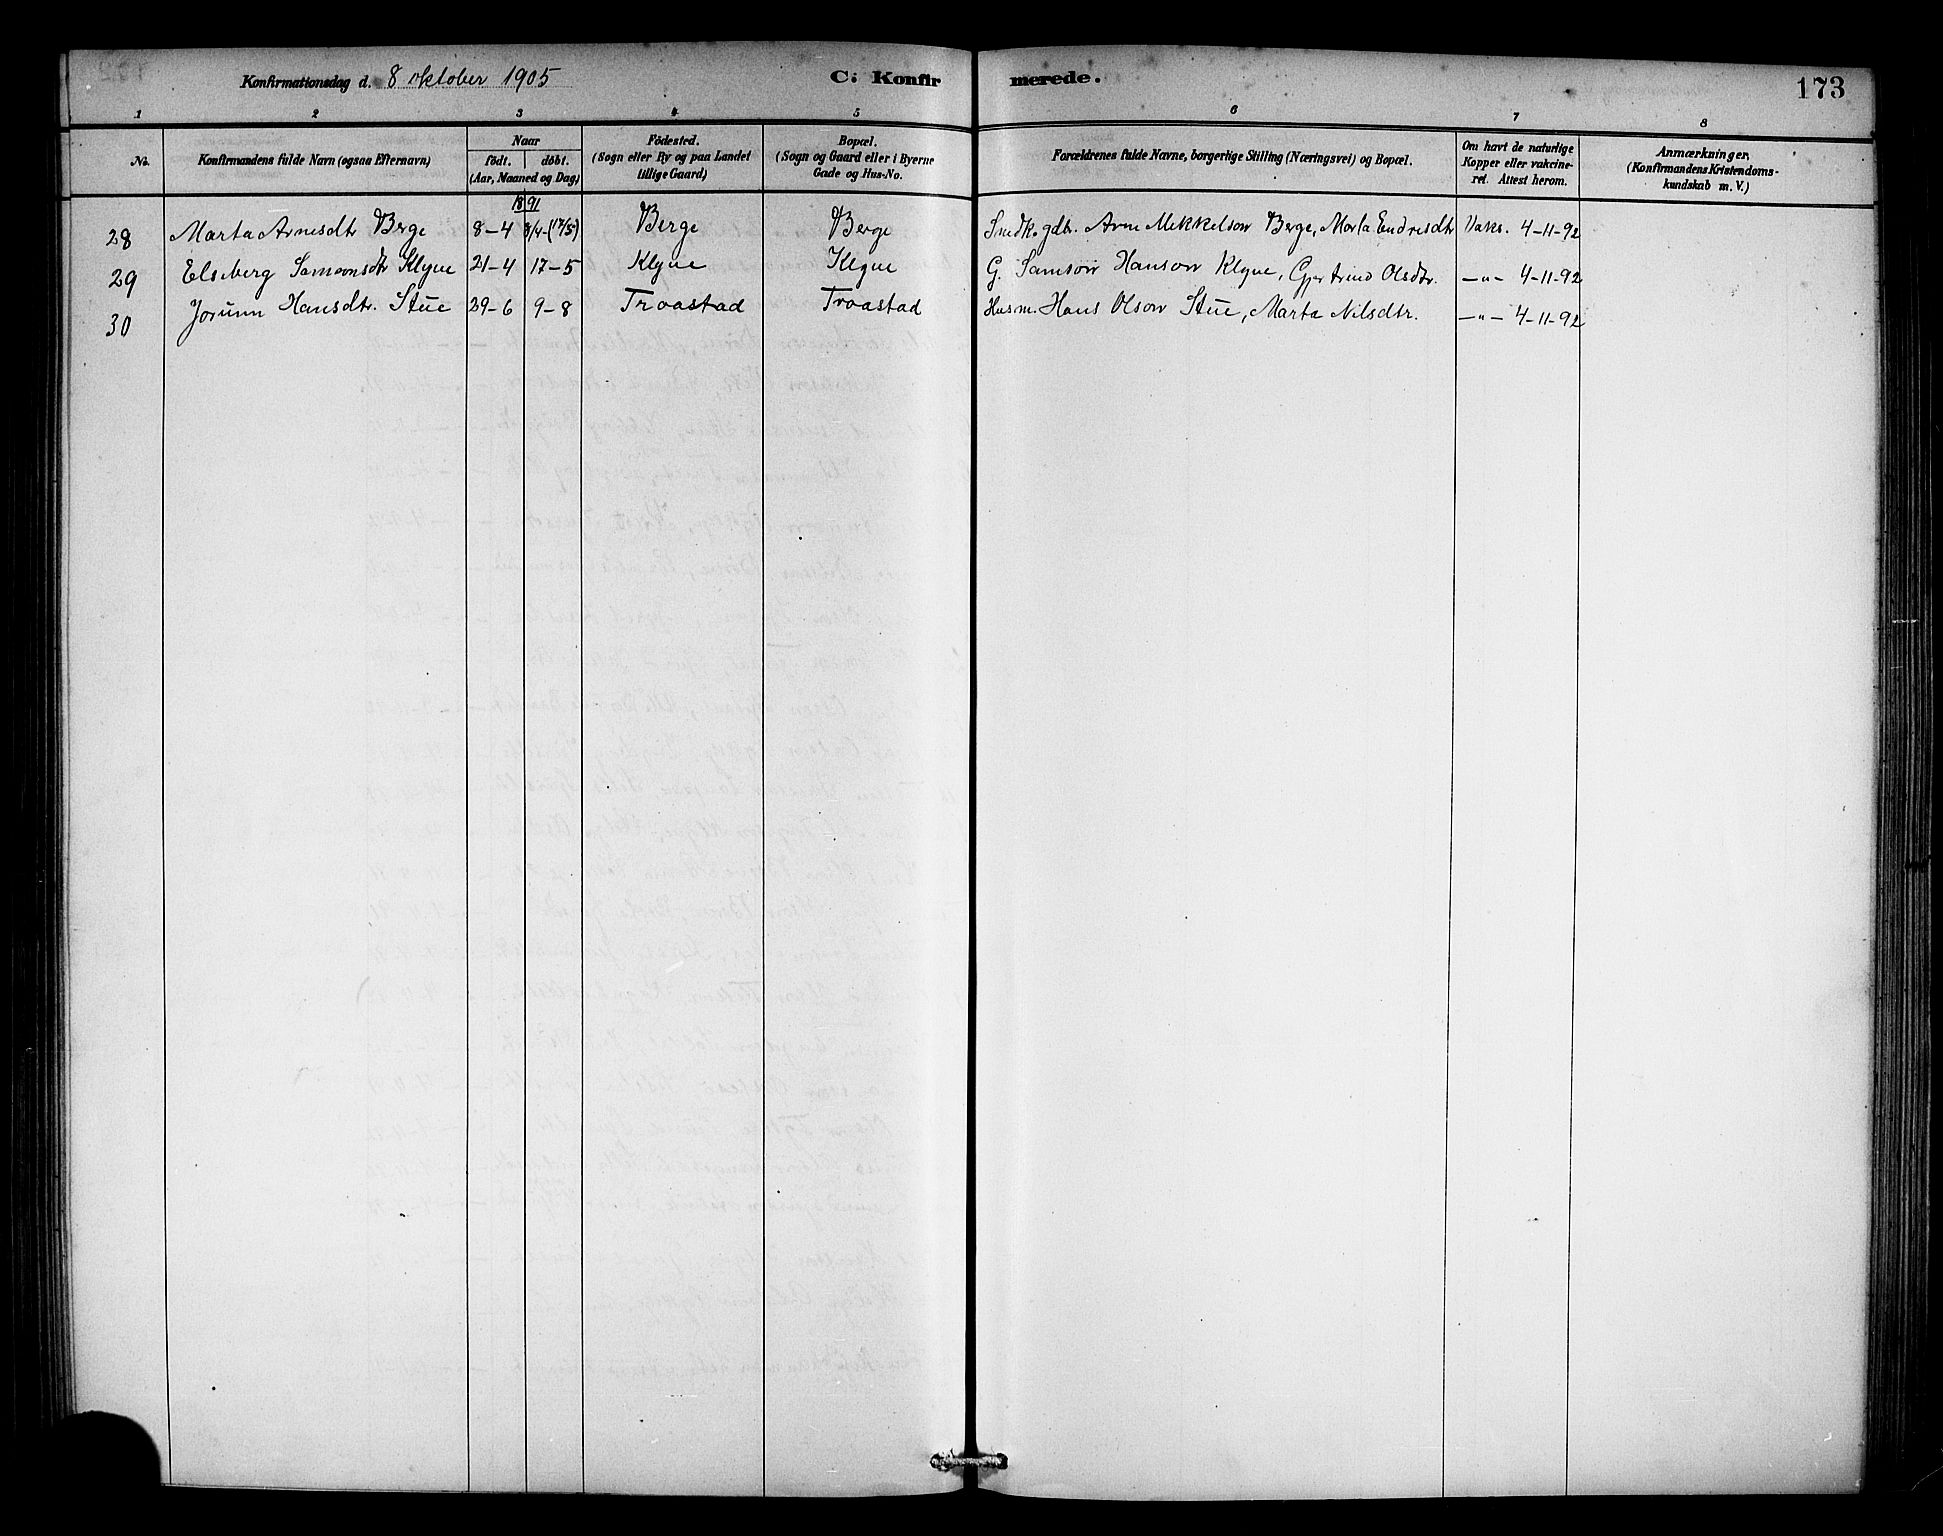 Konfirmationsdag d. 8 oktober 1905 C: Konfirmerede. 173
1 2 3 4 5 6 7 8
No. Konfirmandens fulde Navn (ogsaa Efternavn) Naar født. døbt. (Aar, Maaned og Dag) Fødested. (Sogn eller By og paa Landet tillige Gaard) Bopæl. (Sogn og Gaard eller i Byerne Gade og Hus-No. Forældrenes fulde Navne, borgerlige Stilling (Næringsvei) og Bopæl. Om havt de naturlige Kopper eller vakcineret. Attest herom. Anmærkninger, (Konfirmandens Kristendomskundskab m. V.)
1891
28 Marta Arnesdtr Berge 8-4 8/4-(17/5) Berge Berge Snedk. gdbr. Arne Mikkelson Berge, Marta Endresdtr Vaks. 4-11-92
29 Elsberg Samsonsdtr Klyve 21-4 17-5 Klyve Klyve G. Samson Hanson Klyve, Gjertrud Olsdtr. -"- 4-11-92
30 Jorunn Hansdtr. Stue 29-6 9-8 Troastad Troastad Husm. Hans Olson Stue, Marta Nilsdtr. -"- 4-11-92